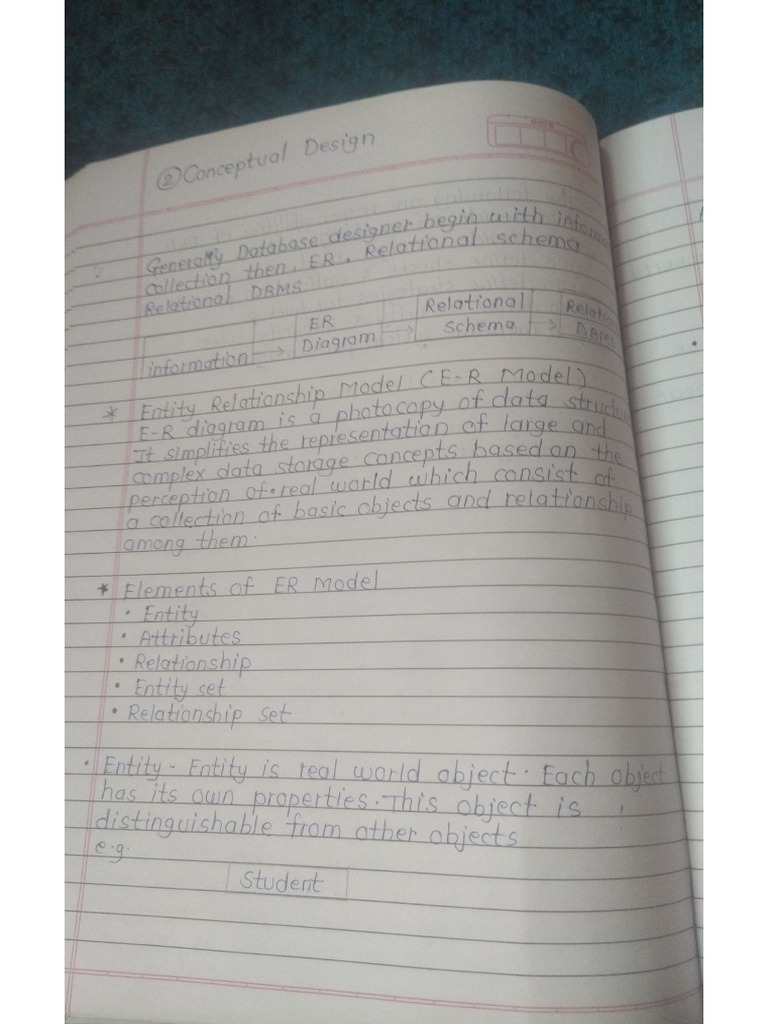 DATE
② Conceptual Design
Generally Database designer begin with
collection then, ER, Relational schema,
Relational DBMS
information → ER Diagram → Relational Schema →
* Entity Relationship Model (E-R Model)
E-R diagram is a photocopy of data
It simplifies the representation of large and
complex data storage concepts based on the
perception of real world which consist of
a collection of basic objects and relationship
among them.
* Elements of ER Model
• Entity
• Attributes
• Relationship
• Entity set
• Relationship set
• Entity - Entity is real world object. Each object
has its own properties. This object is
distinguishable from other objects
e.g.
Student